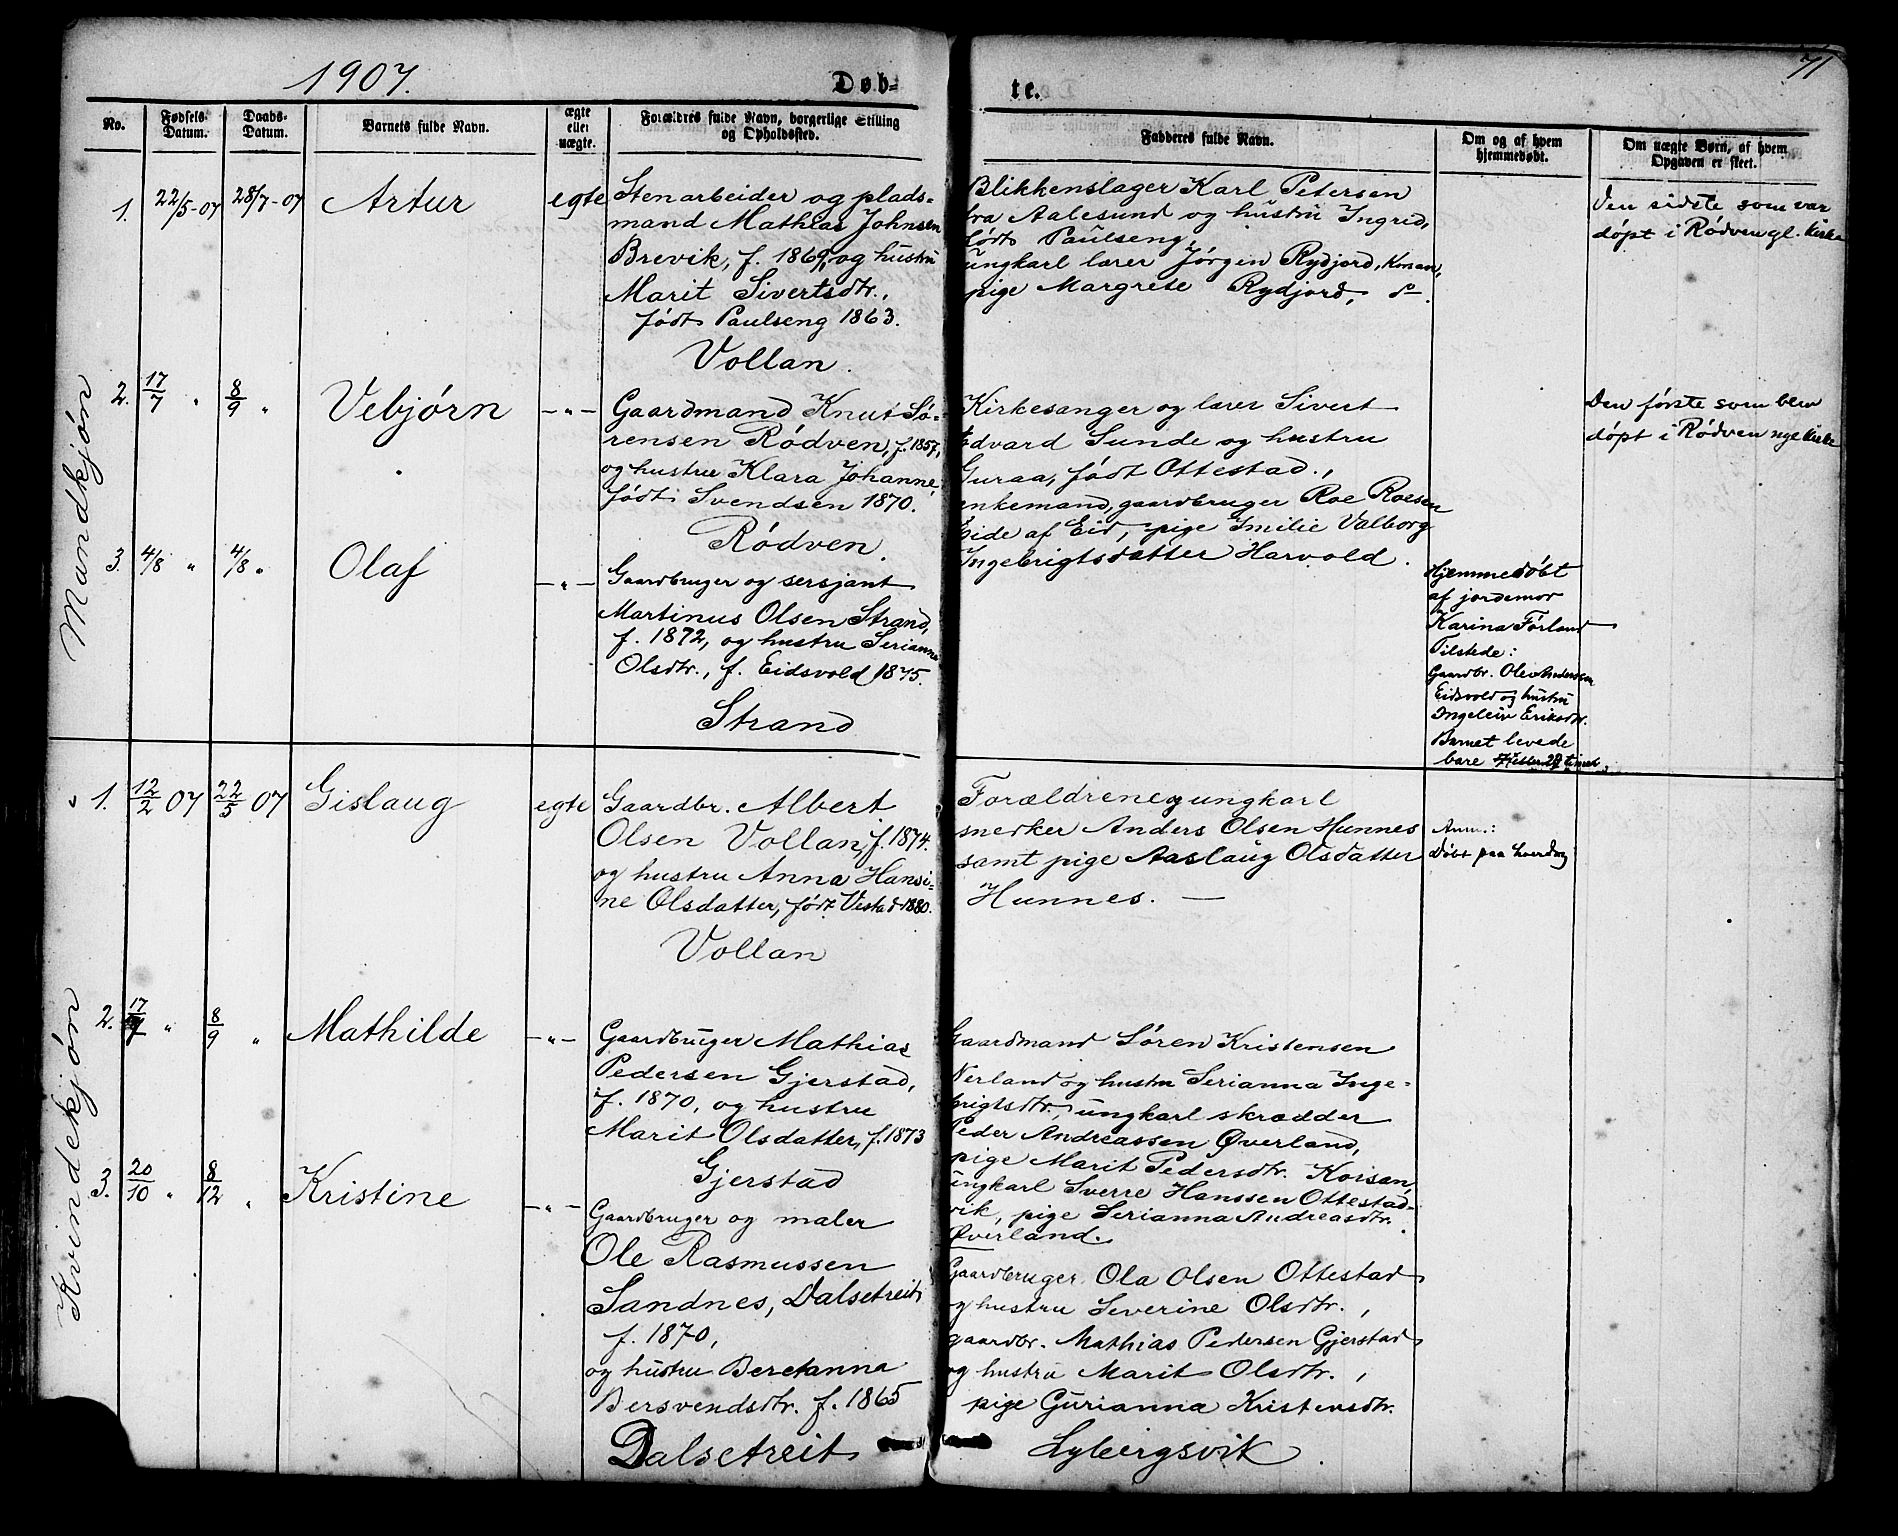 1907.
Døb=
te.
71
No.
Fødsels-Datum.
Daabs-Datum.
Barnets fulde Navn.
ægte eller uægte.
Forældres fulde Navn, borgerlige Stilling og Opholdssted.
Fadderes fulde Navn.
Om og af hvem hjemmedøbt.
Om uægte Børn, af hvem Opgaven er skeet.
Mandkjøn
1. 22/5-07 28/7-07 Artur egte
Stenarbeider og plads-
mand Mathias Johnsen
Brevik, f. 1869, og hustru
Marit Sivertsdtr.,
født Paulseng 1863.
Vollan.
Blikkenslager Karl Petersen
fra Aalesund og hustru Ingrid,
født Paulseng,
ungkarl lærer Jørgen Rydjord,
pige Margrete Rydjord,
Den sidste som var
døpt i Rødven gl. kirke
2. 17/7 " 8/9 " Vebjørn -"-
Gaardmand Knut Sø-
rensen Rødven, f. 1857,
og hustru Klara Johanne,
født Svendsen 1870.
Rødven.
Kirkesanger og lærer Sivert
Edvard Sunde og hustru
Guraa, født Ottestad.,
enkemand, gaardbruger Roe Roesen
Eide af Eid, pige Emilie Valborg
Ingebrigtsdatter Harvold.
Den første som blev
døpt i Rødven nye kirke
3. 4/8 " 4/8 " Olaf -"-
Gaardbruger og sersjant
Martinus Olsen Strand,
f. 1872, og hustru Serianna
Olsdtr., f. Eidsvold 1875.
Strand
Hjemmedøbt
af jordemor
Karina Førland
Tilstede:
Gaardbr. Ole Andersen
Eidsvold og hustru
Ingeleiv Eriksdtr.
Barnet levede
bare
Kvindekjøn
" 1. 12/2 07 22/5 07 Gislaug egte
Gaardbr. Albert
Olsen Vollan, f. 1874.
og hustru Anna Hansi-
ne Olsdatter, født Vestad 1880.
Vollan
Forældrene og ungkarl
snedker Anders Olsen Hunnes
samt pige Aaslaug Olsdatter
Hunnes. —
Anm.:
Døbt paa hverdag
2. 17/7 " 8/9 " Mathilde -"-
Gaardbruger Mathias
Pedersen Gjerstad,
f. 1870, og hustru
Marit Olsdatter, f. 1873
Gjerstad
Gaardmand Søren Kristensen
Nerland og hustru Serianna Inge-
brigtsdtr., ungkarl skrædder
Peder Andreassen Øverland,
pige Marit Pedersdtr. Korsan,
ungkarl Sverre Hanssen Ottestad-
vik, pige Serianna Andreasdtr.
Øverland.
3. 20/10 " 8/12 " Kristine -"-
Gaardbruger og maler
Ole Rasmussen
Sandnes, Dalsetreit
f. 1870,
og hustru Beretanna
Bersvendsdtr. f. 1865
Dalsetreit
Gaardbruger Ola Olsen Ottestad
og hustru Severine Olsdtr.,
gaardbr. Mathias Pedersen Gjerstad
og hustru Marit Olsdtr.,
pige Gurianna Kristensdtr.
Lybergsvik